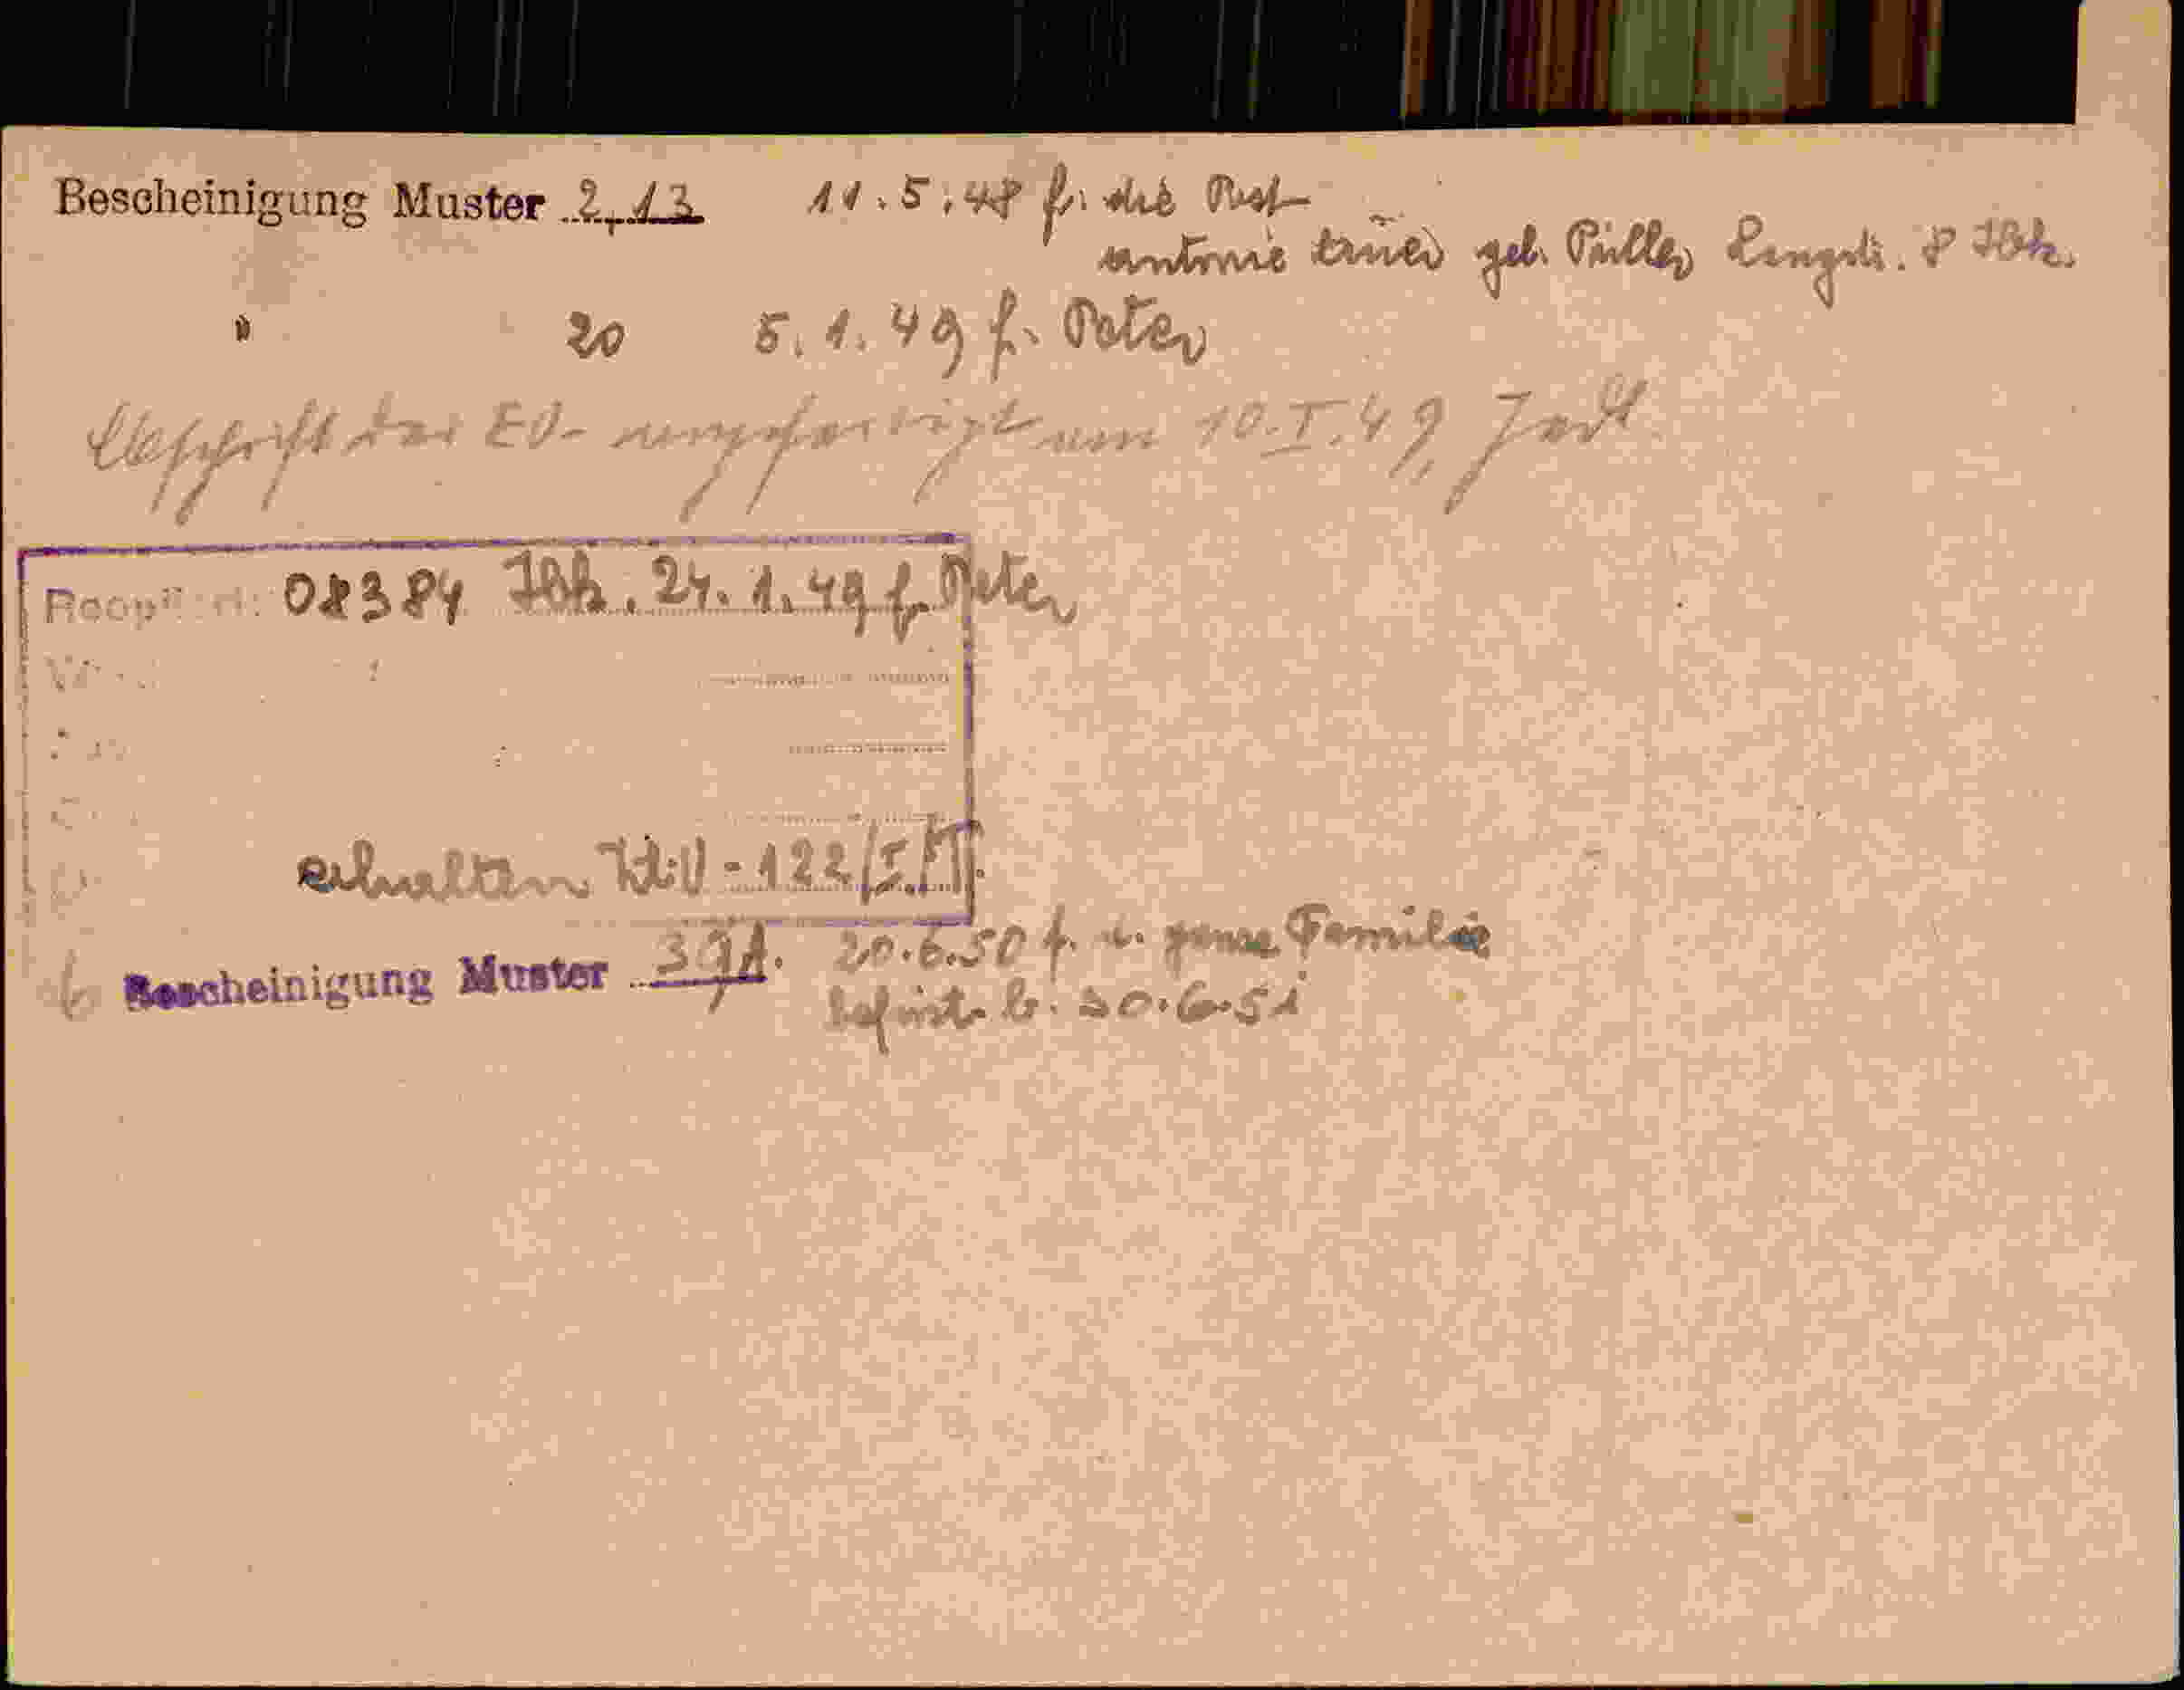 Bescheinigung Muster 2,13 11.5.48 f. die Post
antonie geb. Püller Lengstr. 8 Ibk.
" 20 5.1.49 f. Peter
Abschrift der EO- ausgefertigt am 10.I.49,
08384 Ibk. 24.1.49 f. Peter
erhalten 122/I.
Bescheinigung Muster 20.6.50 f. d. ganze Familie
befrist. b. 30.6.51